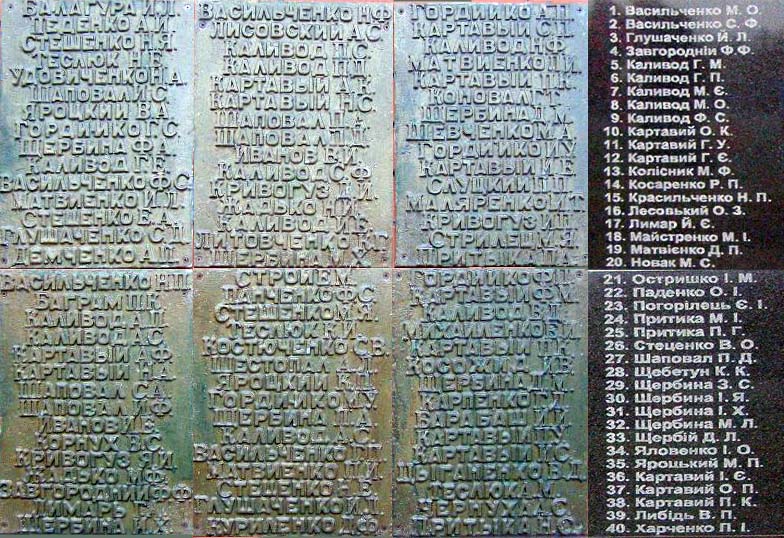 БАЛАГУРА И.Л.
ПЕДЕНКО А.И.
СТЕШЕНКО Н.Я.
ТЕСЛЮК Н.Е.
УДОВИЧЕНКО Н.А.
ШАПОВАЛ И.С.
ЯРОЦКИЙ В.А.
ГОРДИЙКО Г.С.
ЩЕРБИНА Ф.А.
КАЛИВОД Г.Е.
ВАСИЛЬЧЕНКО Ф.С.
МАТВИЕНКО И.Л.
СТЕЦЕНКО Е.А.
ГЛУЩАЧЕНКО С.Д.
ДЕМЧЕНКО А.П.
ВАСИЛЬЧЕНКО Н.Ф.
ЛИСОВСКИЙ А.С.
КАЛИВОД П.С.
КАЛИВОД П.П.
КАРТАВЫЙ А.К.
КАРТАВЫЙ Н.С.
ШАПОВАЛ П.А.
ШАПОВАЛ П.Д.
ИВАНОВ В.И.
КАЛИВОД С.Ф.
КРИВОГУЗ Я.И.
ЖАДЬКО Н.И.
КАЛИВОД И.Е.
ЛИТОВЧЕНКО К.Г.
ЩЕРБИНА М.Х.
ГОРДИЙКО А.П.
КАРТАВЫЙ С.П.
КАЛИВОД Н.Ф.
МАТВИЕНКО П.И.
КАРТАВЫЙ П.К.
КОНОВАЛ Г.Т.
ЩЕРБИНА Д.М.
ШЕВЧЕНКО М.А.
ГОРДИЙКО И.У.
КАРТАВЫЙ М.Е.
СЛУЦКИЙ П.П.
МАЛЯРЕНКО И.Т.
КРИВОГУЗ И.П.
СТРИЛЕЦ М.Я.
ПРИТЫКА П.А.
1. Васильченко М. О.
2. Васильченко С. Ф.
3. Глушаченко Й. Л.
4. Завгородній Ф.Ф.
5. Каливод Г. М.
6. Каливод Г. П.
7. Каливод М. Є.
8. Каливод М. О.
9. Каливод Ф. С.
10. Картавий О. К.
11. Картавий Г. У.
12. Картавий Г. Є.
13. Колісник М. Ф.
14. Косаренко Р. П.
15. Красильченко Н. П.
16. Лесовький О. З.
17. Лимар Й. Є.
18. Майстренко М. І.
19. Матвієнко Д. П.
20. Новак М. С.
ВАСИЛЬЧЕНКО Н.П.
БАГРАМ П.К.
КАЛИВОД А.П.
КАЛИВОД А.С.
КАРТАВЫЙ А.Ф.
КАРТАВЫЙ Н.А.
ШАПОВАЛ С.А.
ШАПОВАЛ И.Ф.
ИВАНОВ И.Е.
КОРНУХ В.С.
КРИВОГУЗ Я.И.
ЖАДЬКО М.Ф.
ЗАВГОРОДНИЙ Ф.Ф.
ЛИМАРЬ Г.
ЩЕРБИНА И.Х.
СТРОЙ Е.М.
ПАНЧЕНКО Ф.С.
СТЕШЕНКО М.Я.
ТЕСЛЮК К.И.
КОСТЮЧЕНКО С.В.
ШЕСТОПАЛ А.Г.
ЯРОЦКИЙ К.П.
ГОРДИЙКО М.У.
ЩЕРБИНА П.А.
КАЛИВОД А.С.
ВАСИЛЬЧЕНКО Г.П.
МАТВИЕНКО П.И.
СТЕЦЕНКО Н.В.
ГЛУЩАЧЕНКО И.Л.
КУРИЛЕНКО Д.Ф.
ГОРДИЙКО Ф.П.
КАРТАВЫЙ Ф.М.
КАЛИВОД В.П.
МИХАЙЛЕНКО Г.И.
КАРТАВЫЙ П.К.
КОСОЖИД И.В.
ЩЕРБИНА Д.М.
КАРПЕНКО Г.
БАРАБАШ И.К.
КАРТАВЫЙ Г.У.
КАРТАВЫЙ И.С.
ЦЫГАНЕНКО В.Д.
ТЕСЛЮК А.М.
ЧЕРНУХА С.
ПРИТЫКА Н.О.
21. Остришко І. М.
22. Паденко О. І.
23. Погорілець Є. І.
24. Притика М. І.
25. Притика П. Г.
26. Стеценко В. О.
27. Шаповал П. Д.
28. Щебетун К. К.
29. Щербина З. С.
30. Щербина І. Я.
31. Щербина І. Х.
32. Щербина М. Л.
33. Щербій Д. Л.
34. Яловенко І. О.
35. Яроцький М. П.
36. Картавий І. Є.
37. Картавий О. П.
38. Картавий П. К.
39. Либідь В. П.
40. Харченко П. І.